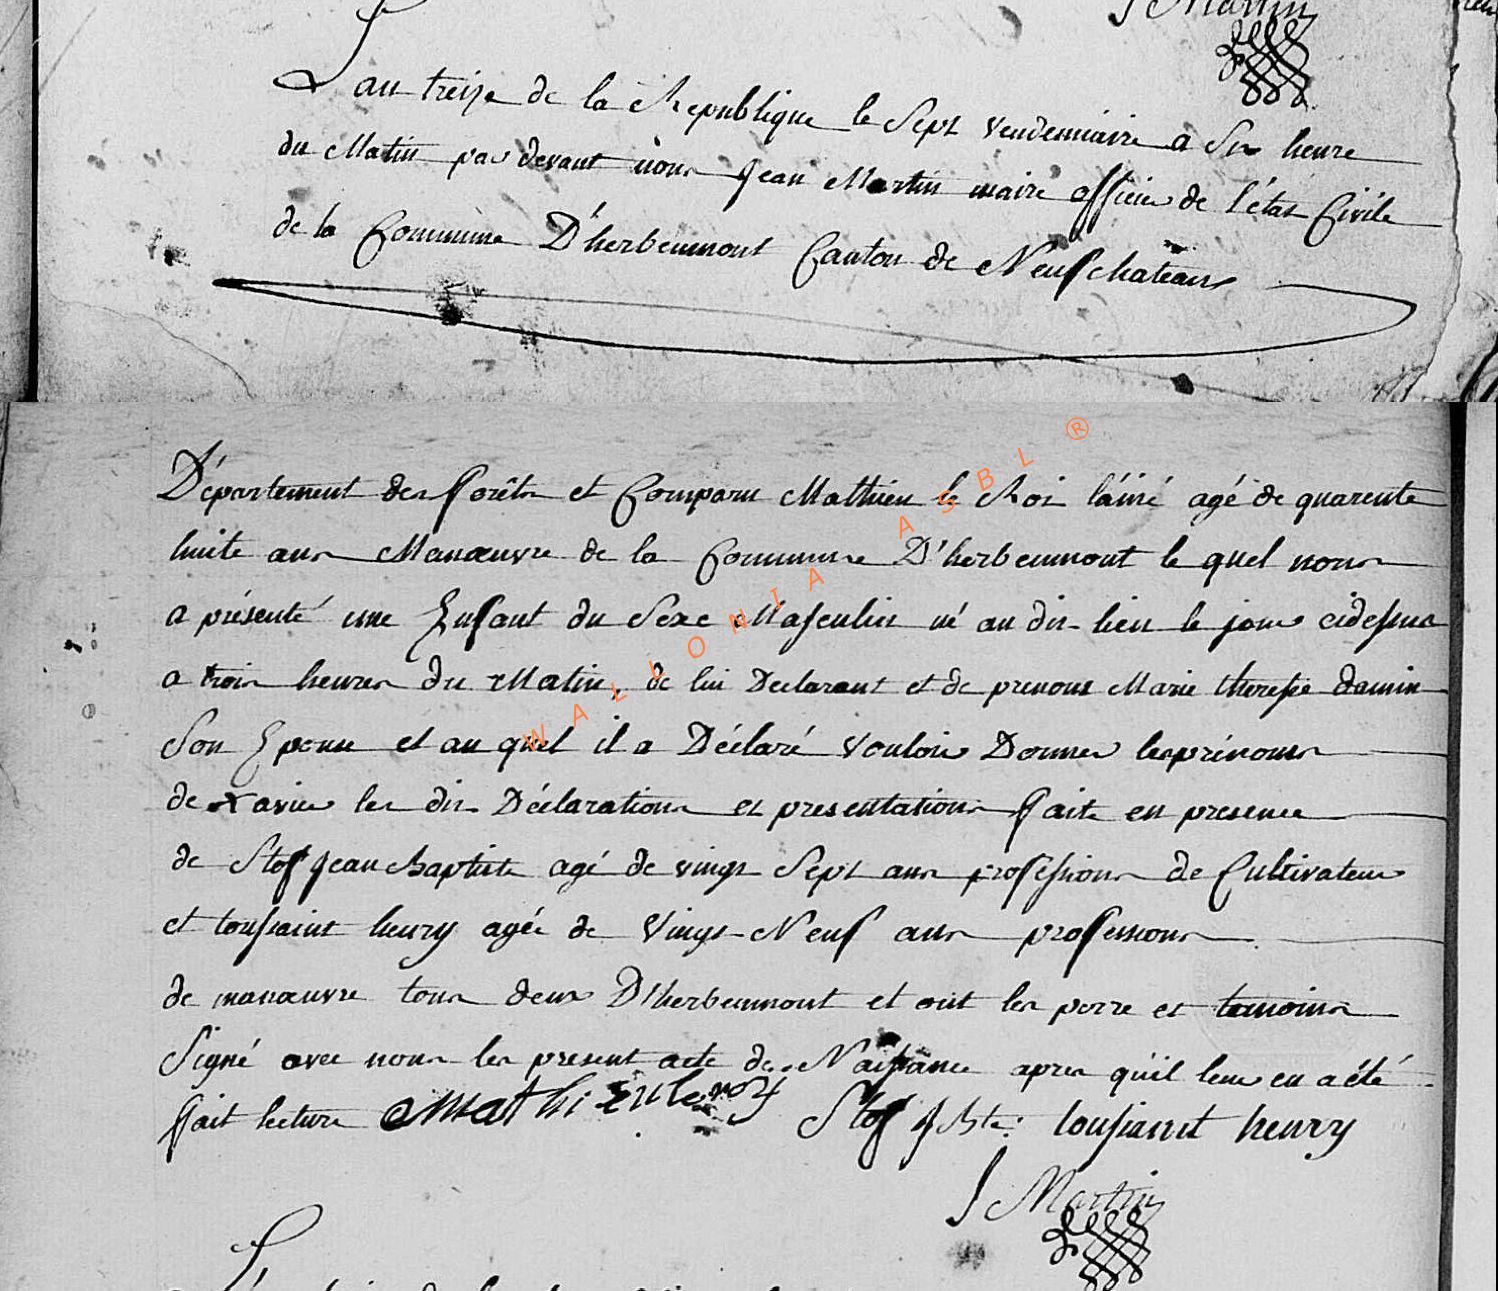 J Martin
L'an treize de la Republique le Sept Vendemiaire a Six heure
du Matin par devant nous Jean Martin maire officier de l'état Civile
de la Commune D'herbeumont Canton de Neufchateau
Département des forêts et Comparu Mathieu le Roi láiné agé de quarente
huite ans Manœuvre de la Commune D'herbeumont le quel nous
a présenté une Enfant du Sexe Masculin né au dit lieu le jour cidessus
a trois heures du Matin, de lui Declarant et de prenons Marie therese damin
Son Epouse et au quel il a Déclaré vouloir Donner les prénoms
de xavier les dis Déclarations et presentations fait en presence
de Stof jean baptiste agé de vingt Sept ans professions de Cultivateur
et toussaint henry agée de Vingt Neuf ans professions
de manœuvre tous deux D'herbeumont et ont les perre et temoins
Signé avec nous les present acte de Naissance apres qu'il leur en a été
fait lecture Mathieu leroy Stof J Bte: tousiant henry
J Martin
WALLONIA ASBL ®